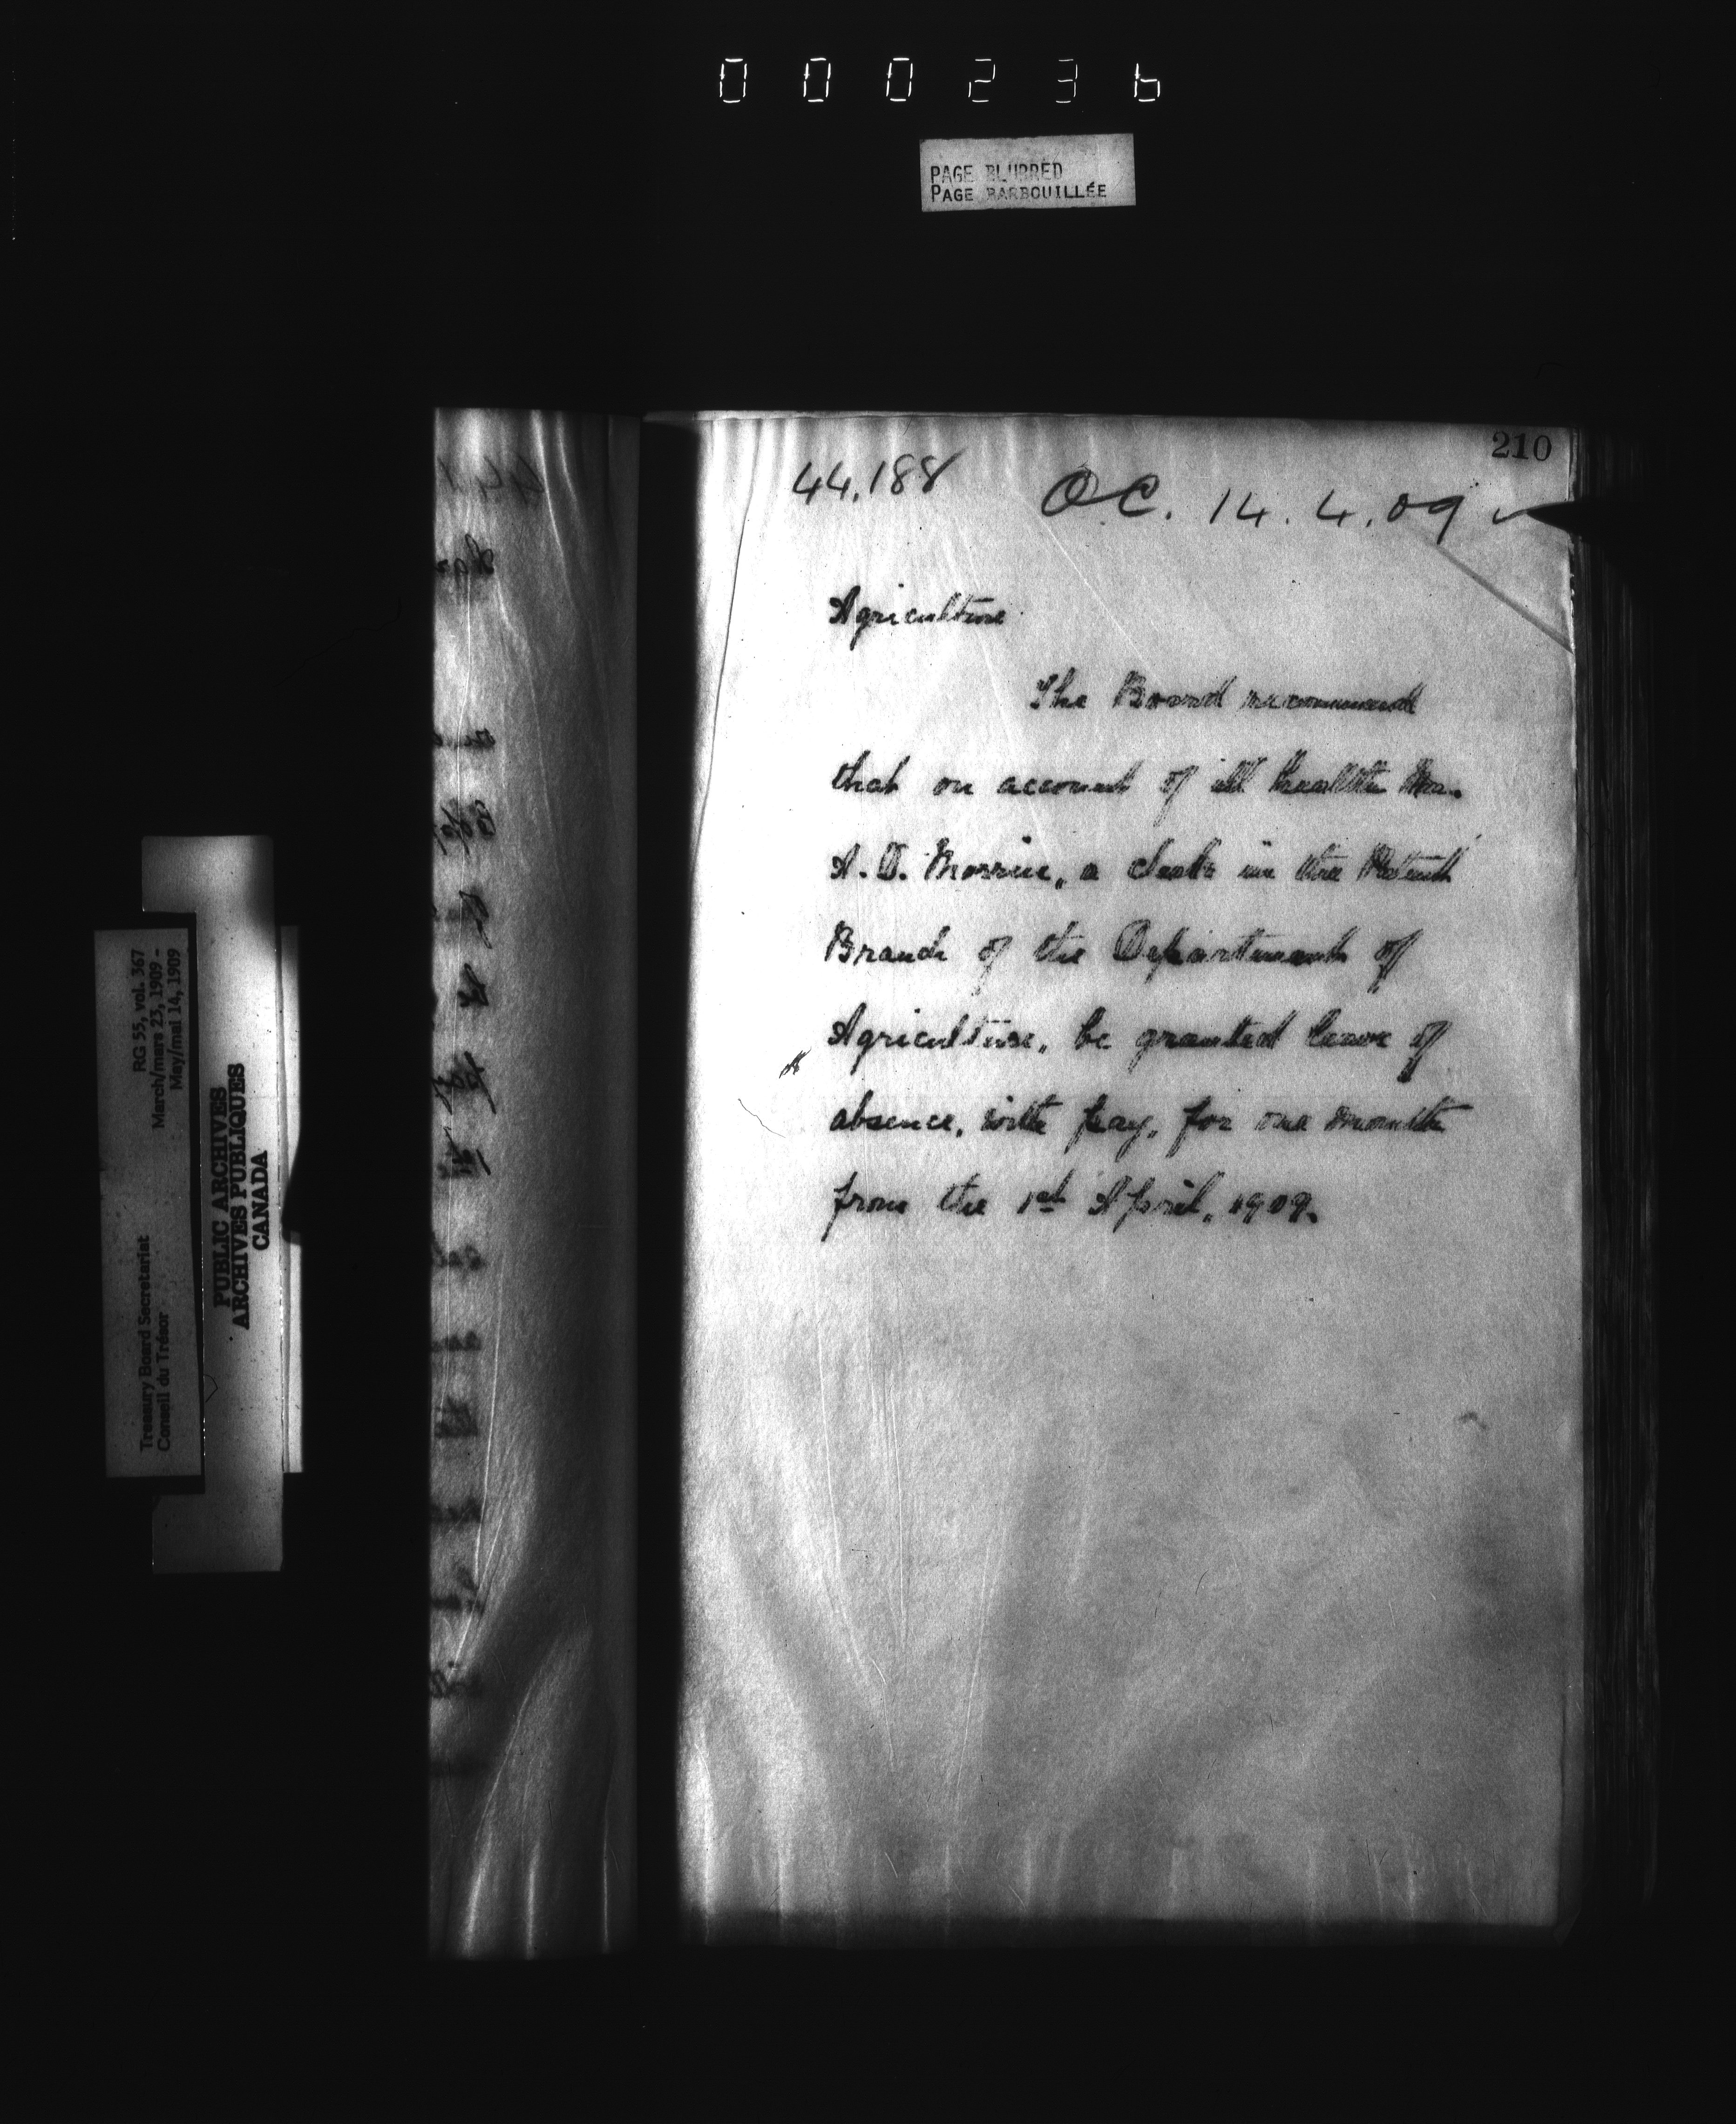 000236
PAGE BLURRED
PAGE BARBOUILLÉE
210
44.188
OC. 14. 4. 09
Agriculture
The Board recommend
that on account of ill health Mr.
A. D. a clerk in the Patent
Branch of the Department of
Agriculture, be granted leave of
absence, with pay, for one month
from the 1st April, 1909.
RG 55, vol. 367
March/mars 23, 1909 -
May/mai 14, 1909
Treasury Board Secretariat
Conseil du Trésor
PUBLIC ARCHIVES
ARCHIVES PUBLIQUES
CANADA